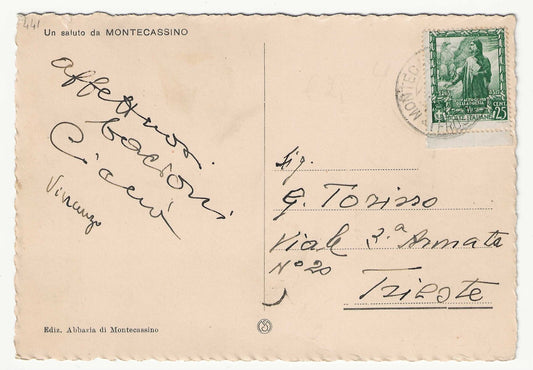 441
Un saluto da MONTECASSINO
affettuosi
bacioni
Vincenzo
Ediz. Abbazia di Montecassino
CENT.
25
POSTE ITALIANE
Sig.
G. Torisso
Viale 3.ª Armata
Nº 20
Trieste